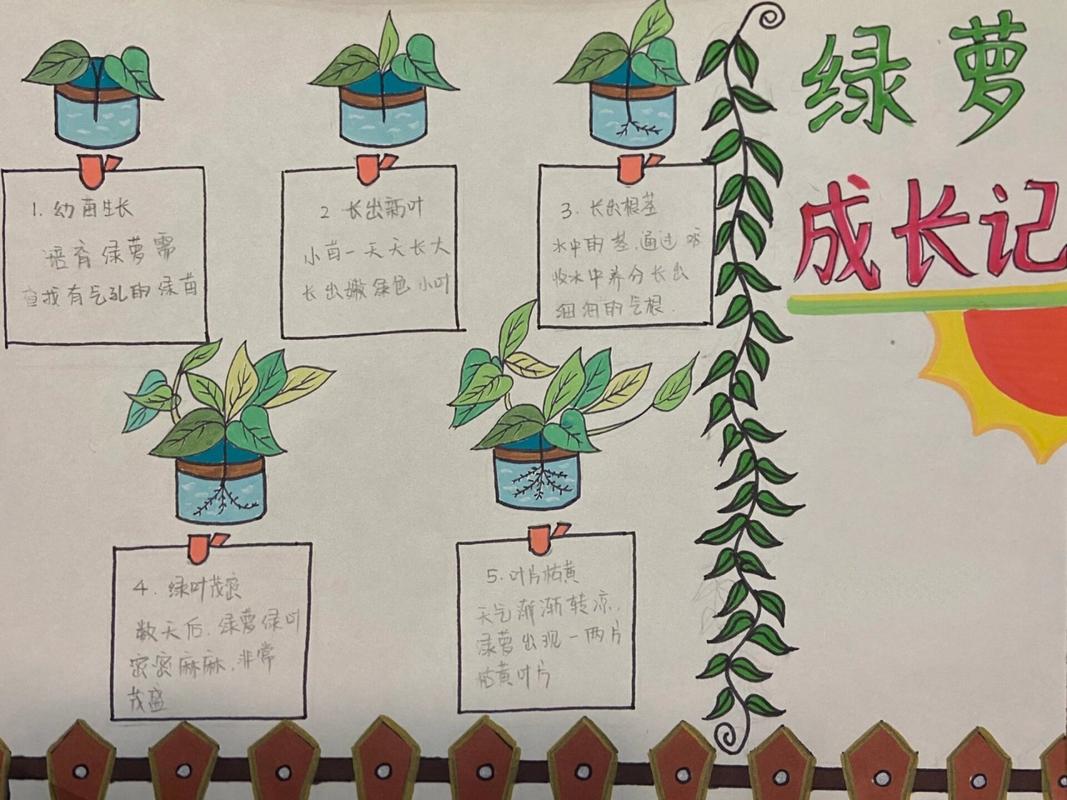 绿萝
成长记
1. 幼苗生长
培育绿萝需
查找有气孔的绿苗
2 长出新叶
小苗一天天长大
长出嫩绿色小叶
3. 长出根茎
水中的茎通过吸
收水中养分长出
细细的气根.
4. 绿叶茂密
数天后.绿萝绿叶
密密麻麻.非常
茂盛
5. 叶片枯黄
天气渐渐转凉.
绿萝出现一两片
枯黄叶片